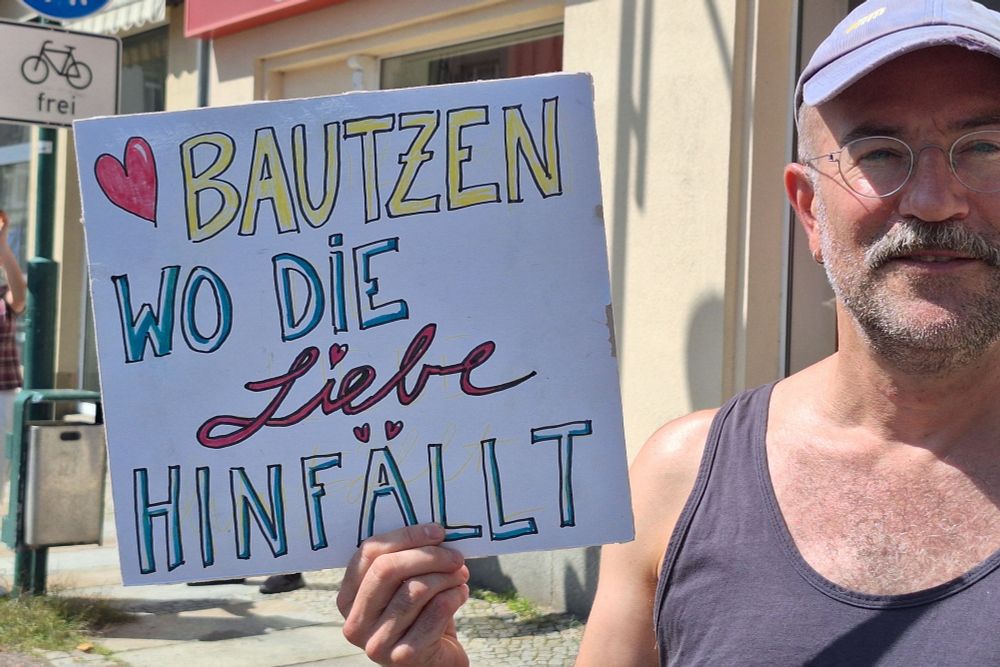 frei
BAUTZEN
WO DIE
Liebe
HINFÄLLT